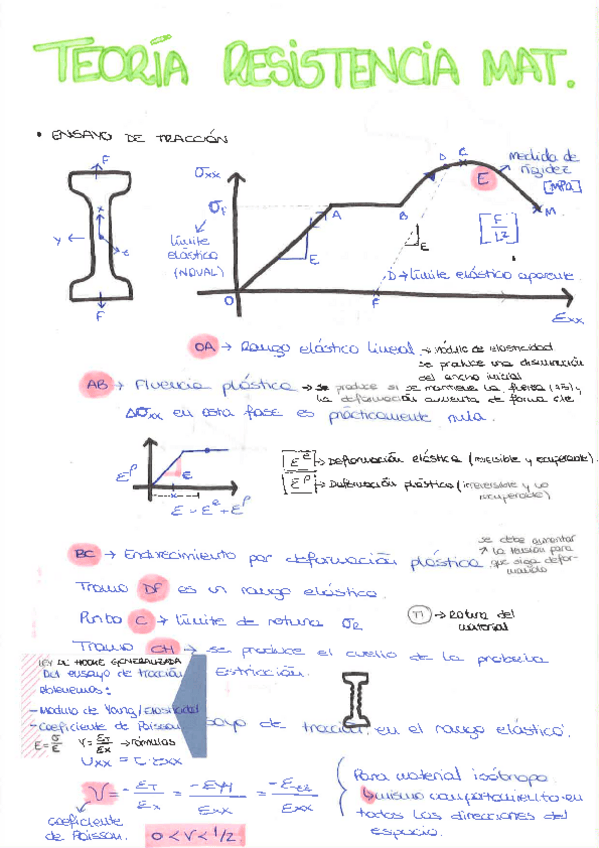 TEORÍA RESISTENCIA MAT.
• ENSAYO DE TRACCIÓN
F
x
y
z
F
σxx
σF
límite
elástico
(NOVAL)
O
A
E
B
E
D
C
E
M
medida de
rigidez
[MPa]
[F/L²]
D → límite elástico aparente
F
Exx
OA → Rango elástico lineal → módulo de elasticidad
se produce una disminución
del ancho inicial
AB → Fluencia plástica → se produce si se mantiene la fuerza y
la deformación aumenta de forma
Δσxx en esta fase es prácticamente nula.
E^p
E
E = E^e + E^p
E^e → Deformación elástica (reversible y recuperable).
E^p → Deformación plástica (irreversible y no
recuperable)
BC → Endurecimiento por deformación plástica
se debe aumentar
→ la tensión para
que siga defor-
mando
Tramo DF es un rango elástico.
Punto C → límite de rotura σR
→ Rotura del
material
Tramo CH → se produce el cuello de la probeta
Estricción.
LEY DE HOOKE GENERALIZADA
Del ensayo de tracción
obtenemos:
- Módulo de Young/elasticidad
- Coeficiente de Poisson
E = σ/E V = ET/Ex → fórmulas
de tracción en el rango elástico:
V = -ET/Ex = -Eyy/Exx = -Ezz/Exx
coeficiente
de Poisson.
0 < V < 1/2
Para material isótropo
mismo comportamiento en
todas las direcciones del
espacio.